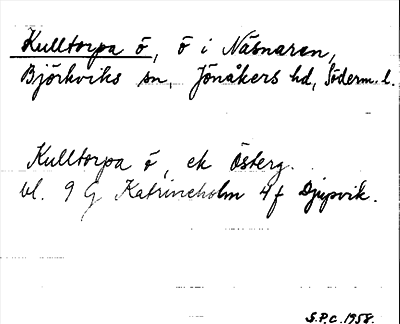 Kulltorpa ö, ö i Näsnaren,
Björkviks sn, Jönåkers hd, Söderm. l.
Kulltorpa ö, ek Österg.
bl. 9 G Katrineholm 4 f Djupvik.
S.P.C. 1958.